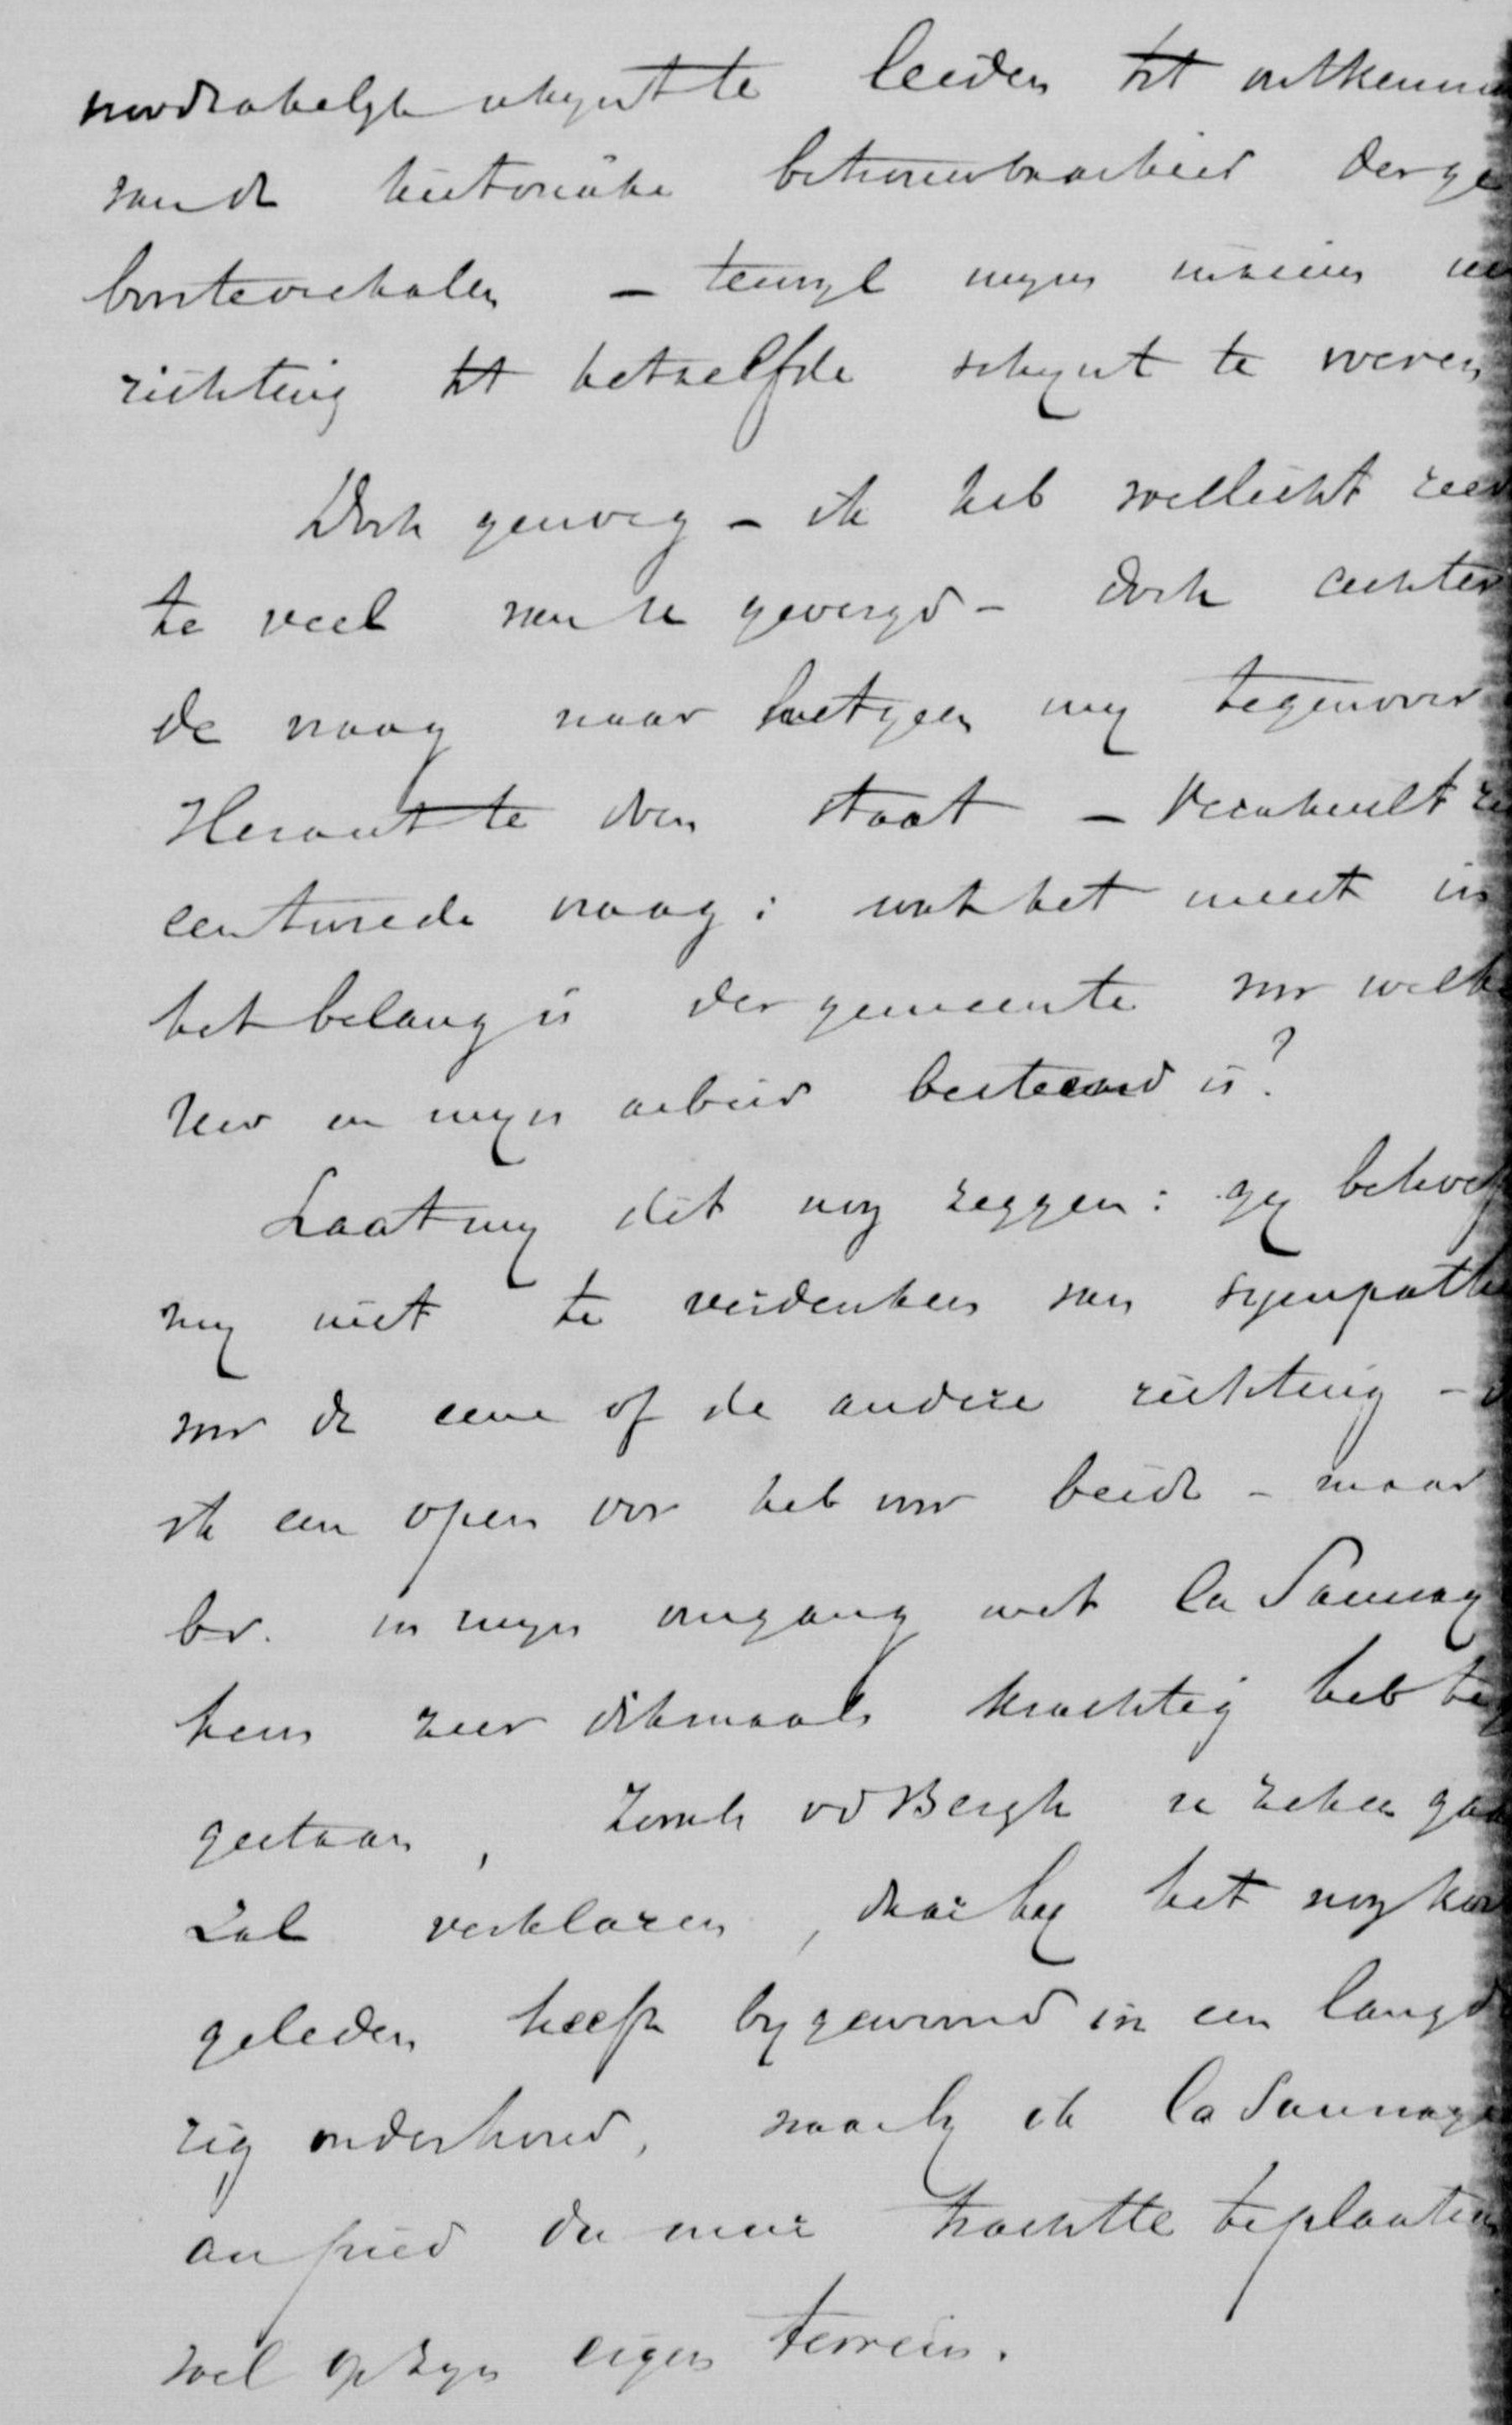 noodzakelyk schynt te leiden tot ontkennin
van de historische betrouwbaarheid der ge
boorteverhalen – terwyl myns inziens uw
richting tot hetzelfde schynt te voeren
Doch genoeg – ik heb wellicht reed
te veel van U gevergd – doch achter
de vraag naar hetgeen my tegenover
Heraut te doen staat – verschuilt zi
een tweede vraag: wat het meest in
het belang is der gemeente voor welke
Uw en myn arbeid besteed is?
Laat my dit nog zeggen: gy behoef
my niet te verdenken van sympathie
voor de eene of de andere richting –
ik een open oor heb voor beide – maar
br. in myn omgang met la Saussay
hem zeer dikmaals krachtig heb teg
gestaan, zooals vd Bergh U zeker gaa
zal verklaren, daar hy het nog kor
geleden heeft bygewoond in een langd
rig onderhoud, waarby ik la Saussaye
au pied du mur trachtte te plaatsen
wel op zyn eigen terrein.